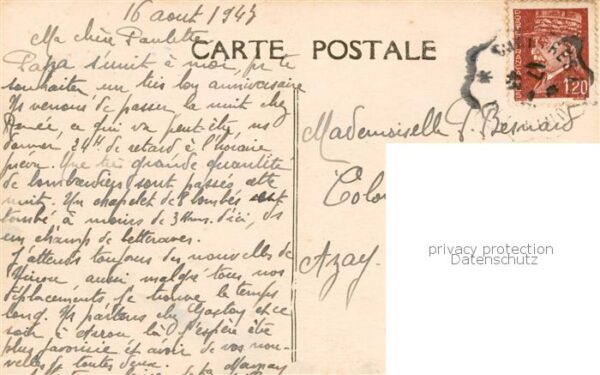 16 aout 1943
Ma chère Paulette
CARTE POSTALE
Papa s'unit à moi, pr te
souhaiter un très bon anniversaire
Ns venons de passer la nuit chez
Renée, ce qui va peut être, ns
donner 24H de retard à l'horaire
prévu. Une très grande quantité
de bombardiers sont passés cette
nuit. Un chapelet de bombes est
tombé à moins de 3 Kms. d'ici, ds
un champ de betteraves.
J'attends toujours des nouvelles de
aussi malgré tous nos
déplacements je trouve le temps
long. Ns partons chez ce
soir à là J'espère être
plus favorisée et avoir de vos nou-
velles de toutes deux.
1,20
Mademoiselle P. Besnard
Colo
Azay.
privacy protection
Datenschutz